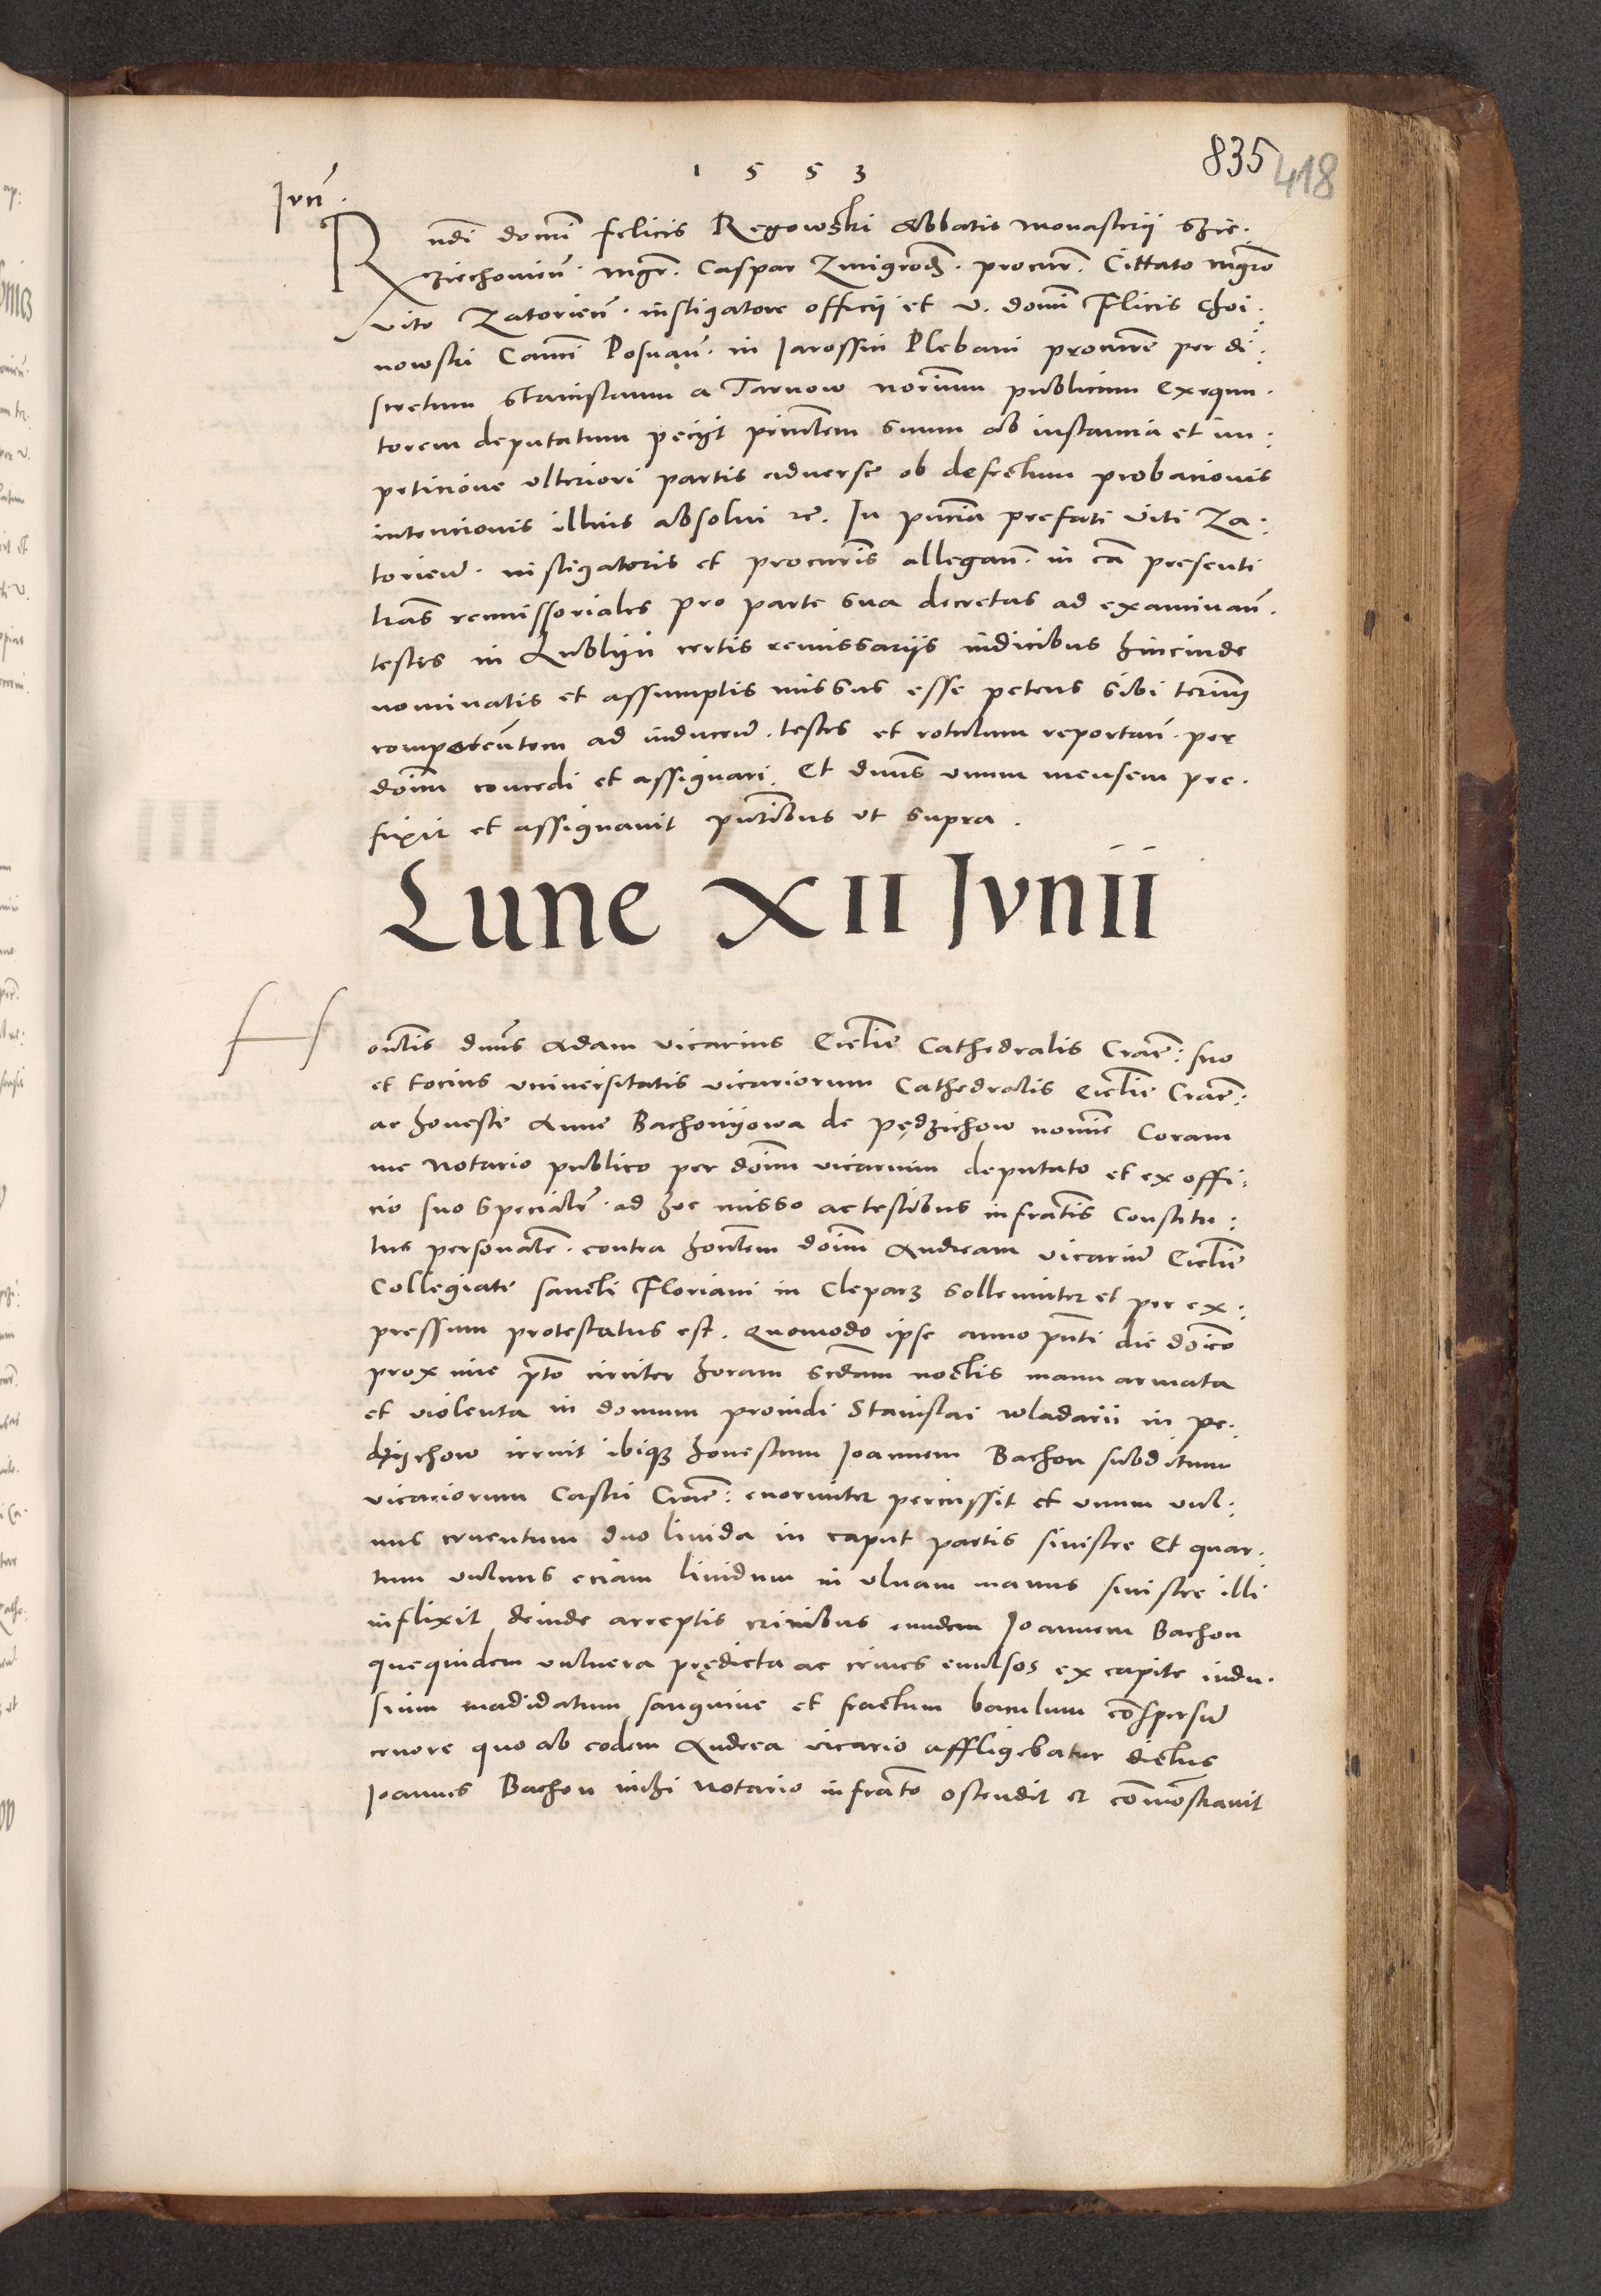 1553
835 418
Jun̄.
Rndi domi Felicis Regowski Abbatis monasterii Szie.
ziechovien̄. mgr̄. Caspar Zmigrodz̄. procur̄. Cittato mgrō
Vito Zatorien̄. instigatore officii et v. domi Flicis Choi:
nowski Canci Posnan̄. in Jarossin Plebani procurē per di:
scretum Stanislaum a Tarnow norium publicum exequu.
torem deputatum peciit princlem suum ab instancia et im:
peticione ulteriori partis adverse ob defectum probacionis
intencionis illius absolvi rē. In pncia prefati Viti Za:
torien̄. instigatoris et procuris allegan̄. in cā presenti
lrās remissoriales pro parte sua decretas ad examinan̄.
testes in Lubliin certis remissariis iudicibus hincinde
nominatis et assumptis missus esse petens sibi terium
competentem ad inducen̄. testes et rotulum reportan̄. per
doīm concedi et assignari. Et dnūs unum mensem pre.
fixit et assignavit pntibus ut supra.
Lune XII Junii
Honlis dnūs Adam vicarius Ecclie Cathedralis Cracē: suo
et tocius universitatis vicariorum Cathedralis Ecclie Cracē:
ac honeste Anne Bachoniiowa de Pędzichow nomīe Coram
me Notario publico per doīm vicarium deputato et ex offi:
cio suo specialē. ad hoc misso ac testibus infratis Constitu:
tus personalē. contra honlem doīm Andream vicariū Ecclie
Collegiate sancti Floriani in Cleparz sollemniter et per ex:
pressum protestatus est. Quomodo ipse anno pn̄ti die dōico
proxime ptō circiter horam scdam noctis manu armata
et violenta in domum providi Stanislai wladarii in Pe:
dziichow irruit ibiq honestum Joannem Bachon subditum
vicariorum Castri Cracē: enormiter percussit et unum vul:
nus cruentum duo livida in caput partis sinistre Et quar.
tum vulnus eciam lividum in ulnam manus sinistre illi
inflixit deinde arreptis crinibus eundem Joannem Bachon
quequidem vulnera prędicta ac crines evulsos ex capite indu.
sium madidatum sanguine et fractum baculum cōspersū
cruore quo ab eodem Andrea vicario affligebatur dictus
Joannes Bachon michi Notario infratō ostendit et cōmōstravit